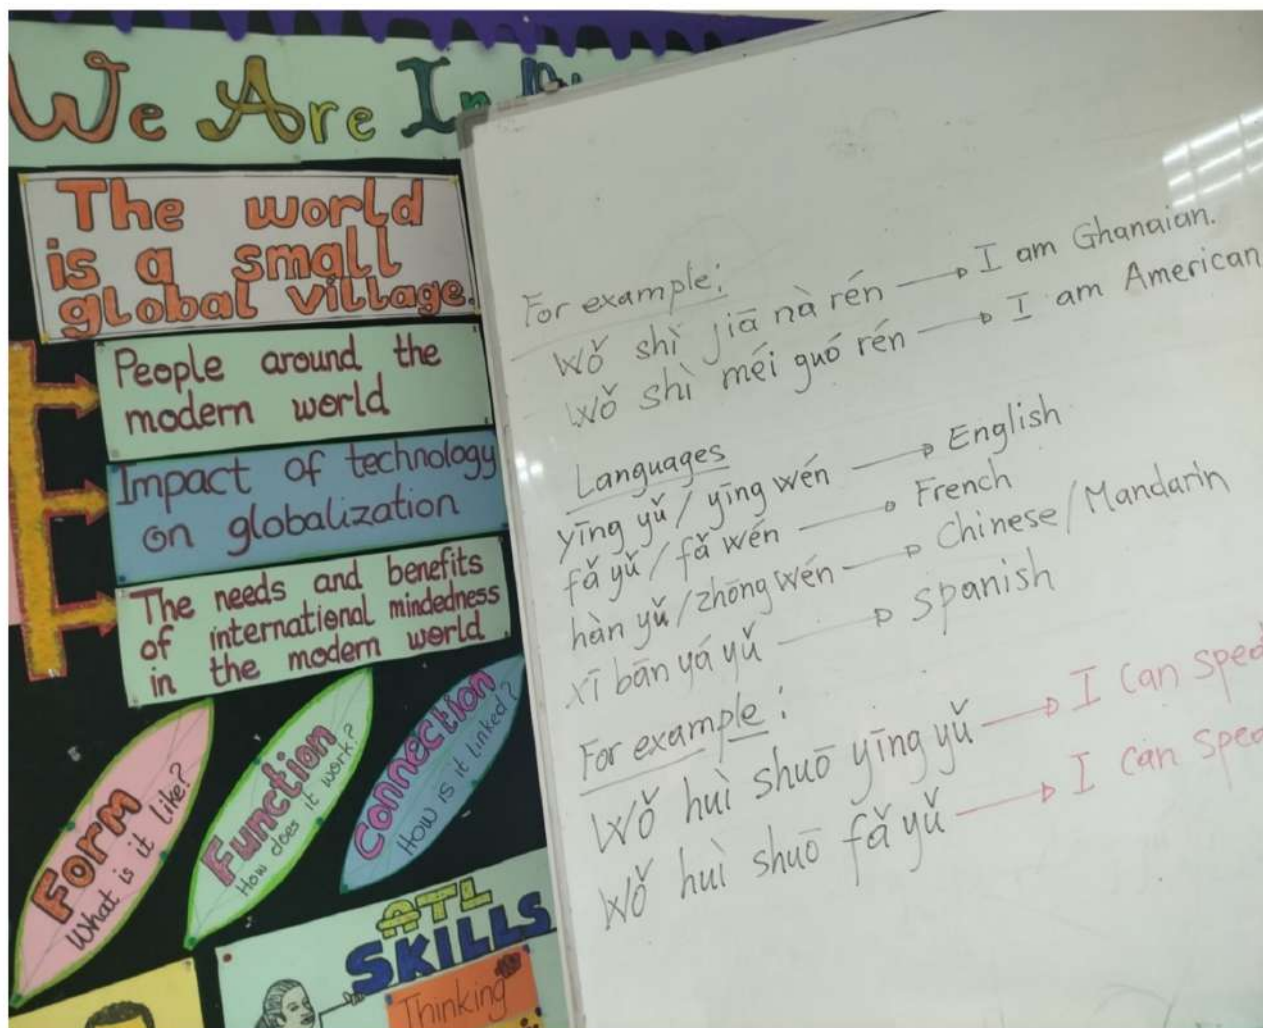 We Are In
The world
is a small
global village.
People around the
modern world
Impact of technology
on globalization
The needs and benefits
of international mindedness
in the modern world
FORM
What is it like?
Function
How does it work?
Connection
How is it linked?
ATL
SKILLS
Thinking
For example:
Wǒ shì jiā nà rén → I am Ghanaian.
Wǒ shì méi guó rén → I am American
Languages
yīng yǔ / yīng wén → English
fǎ yǔ / fǎ wén → French
hàn yǔ / zhōng wén → Chinese / Mandarin
xī bān yá yǔ → Spanish
For example:
Wǒ huì shuō yīng yǔ → I can
Wǒ huì shuō fǎ yǔ → I can